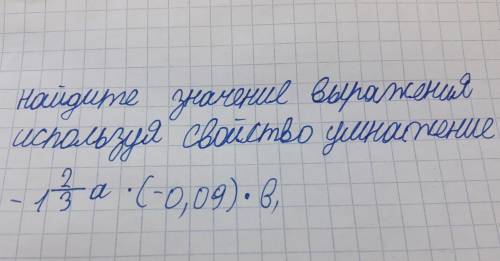 найдите значение выражения
используя свойство умнажение
-1 2/3 а · (-0,09) · в,